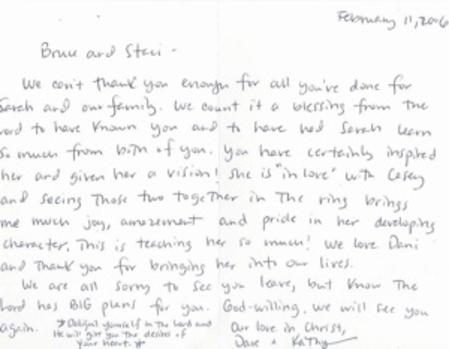 February 11, 2006
Bruce and Staci -
We can't thank you enough for all you've done for
Sarah and our family. We count it a blessing from the
Lord to have known you and to have had Sarah learn
so much from both of you. You have certainly inspired
her and given her a vision! She is "in love" with Casey
and seeing those two together in the ring brings
me much joy, amazement and pride in her developing
character. This is teaching her so much! We love Dani
and thank you for bringing her into our lives.
We are all sorry to see you leave, but know the
Lord has BIG plans for you. God-willing, we will see you
again.
*Delight yourself in the Lord and
He will give you the desires of
your heart.*
Our love in Christ,
Dave & Kathy